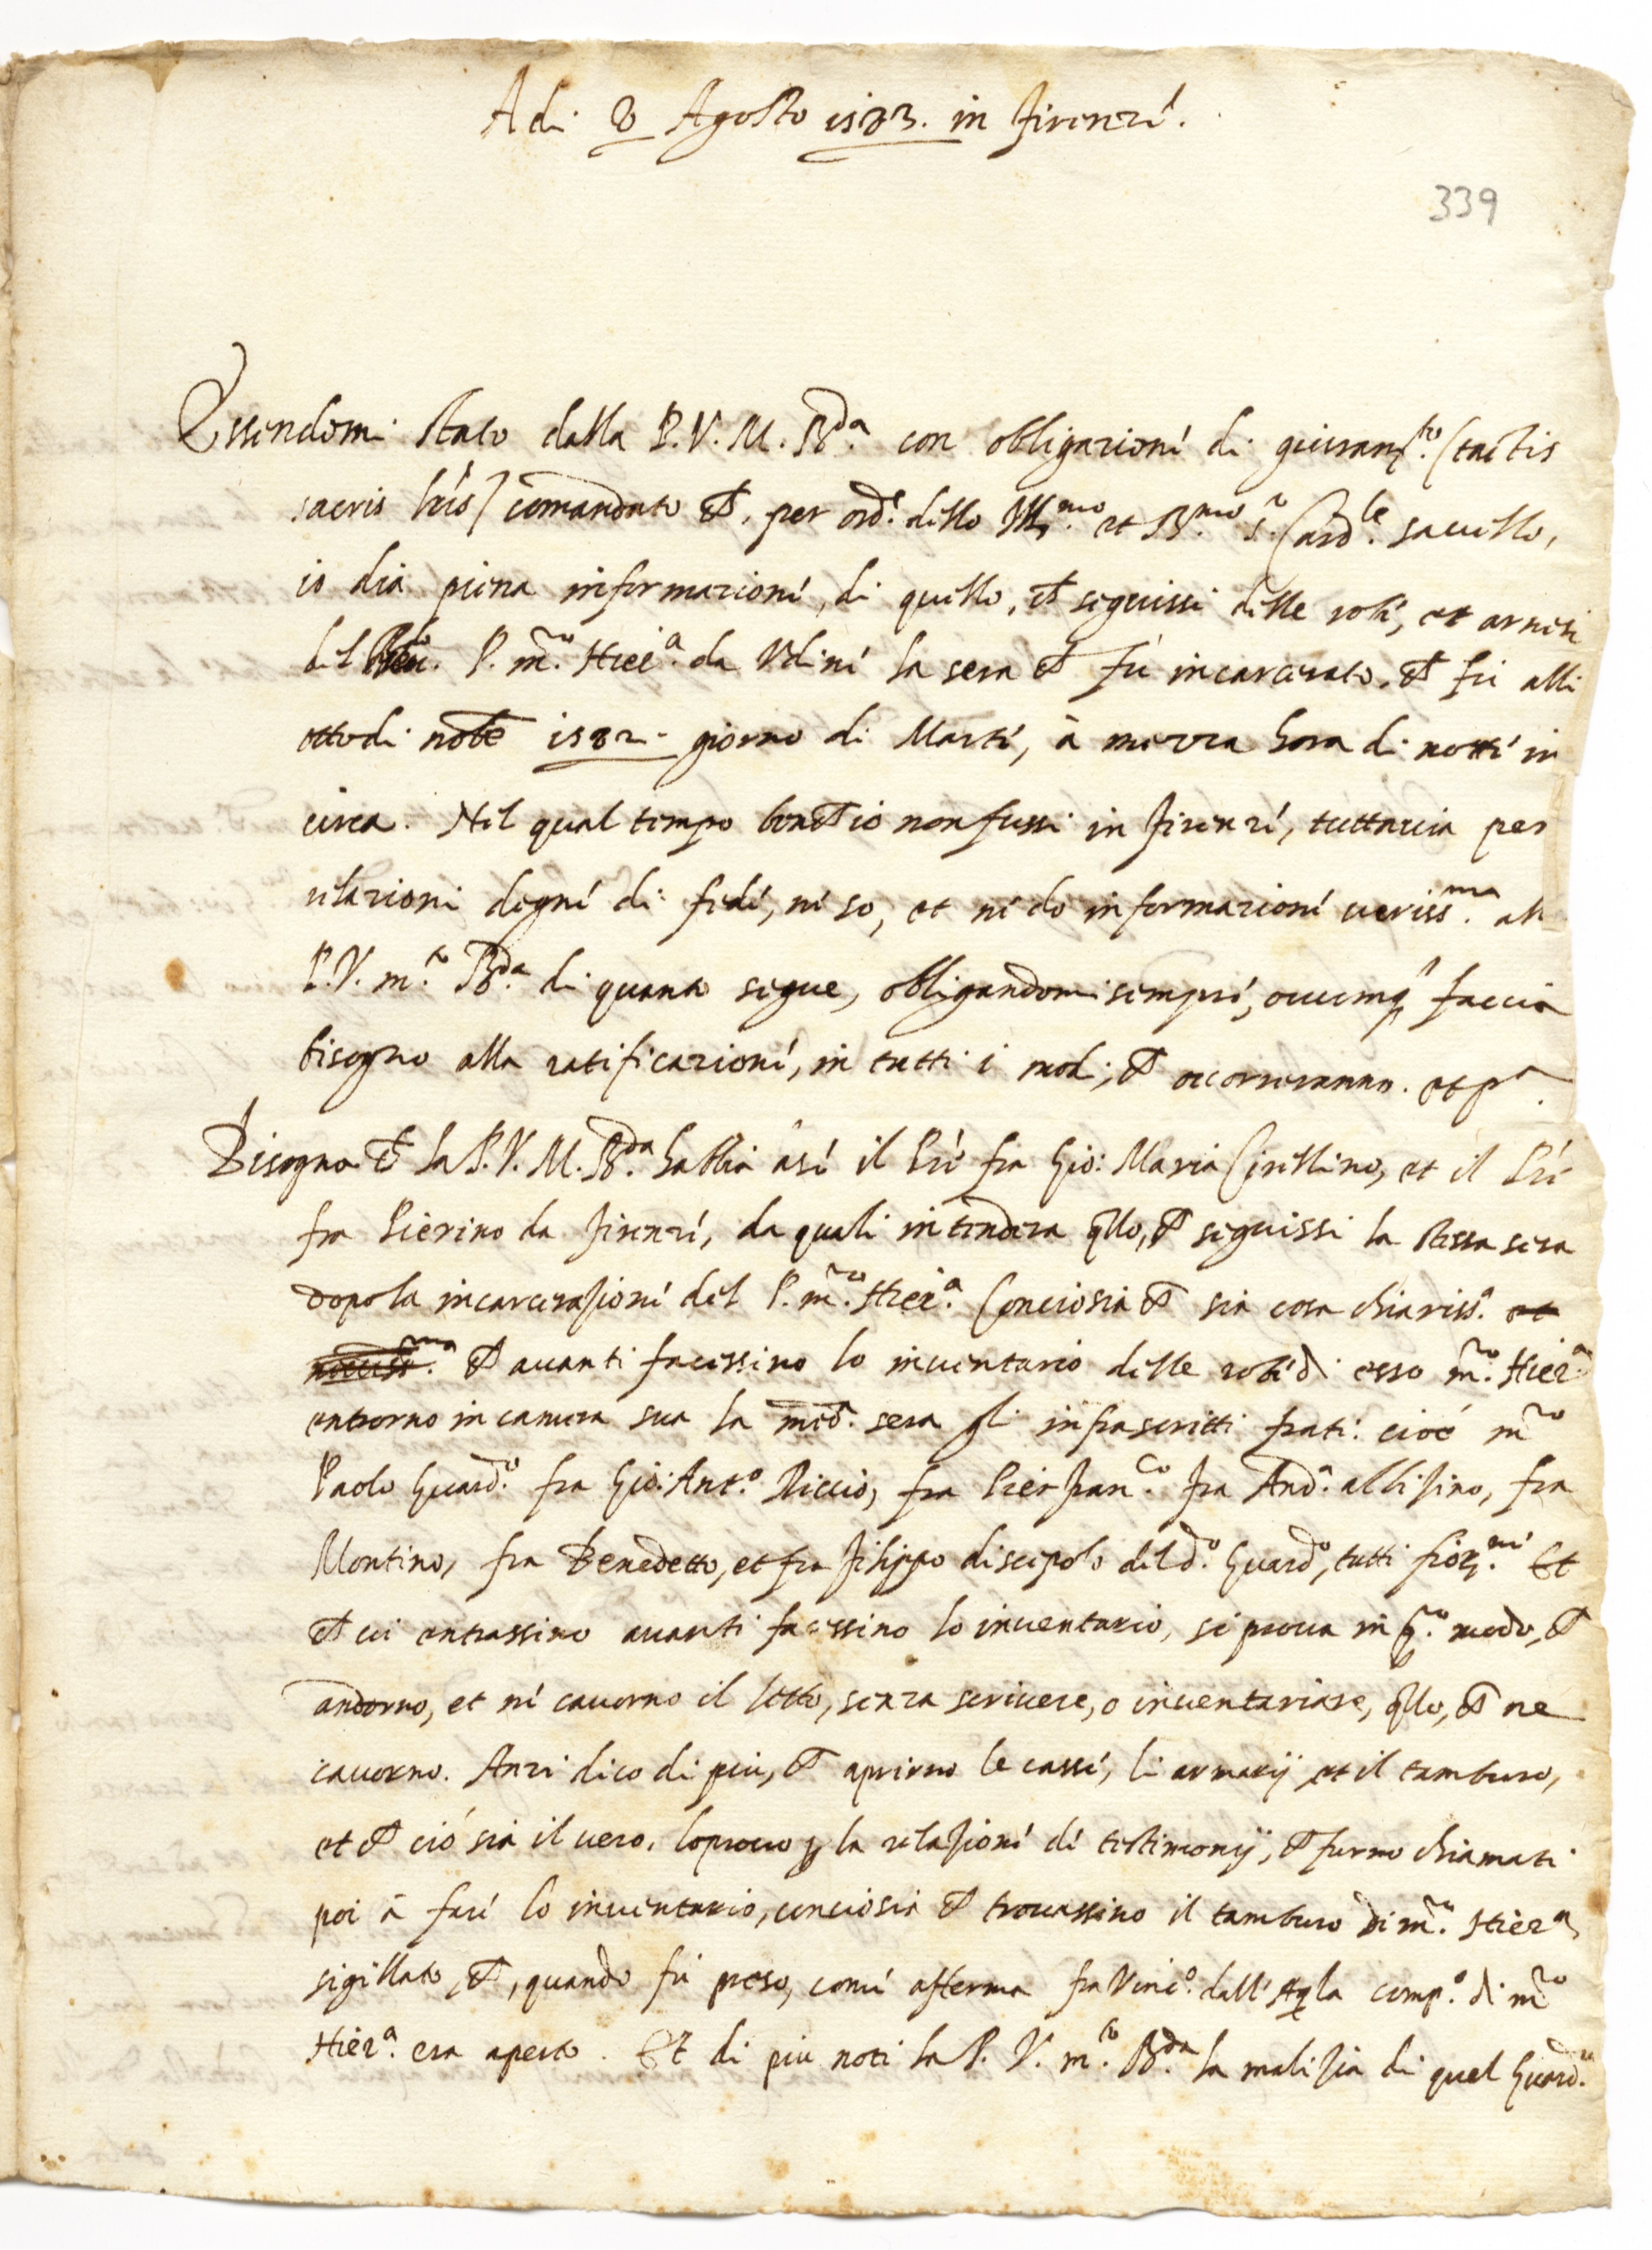 Adi 8 Agosto 1583. in Firenze.
339
Essendomi stato dalla P. V. M. R.da con obligazione di giuram.to (tactis
sacris l'ris) comandato che, per ord.e dello Ill.mo et R.mo S.r Card.le Savello,
io dia piena informazione, di quello, che seguissi delle robe, et arnesi
del P. m.ro Hier.a da Udine la sera che fù incarcerato, che fu alli
otto di nob.e 1582. giorno di Marte, à mezza hora di notte in
circa. Nel qual tempo benche io non fussi in Firenze, tuttavia per
relazioni degne di fede, ne so, et ne do informazione veriss.ma all
P. V. m.to R.da di quanto segue, obligandomi sempre, ovunq faccia
bisogno alla ratificazione, in tutti i modi, che occorreranno. et p.a
Bisogna che la P. V. M. R.da habbia à se il Pre fra Gio: Maria Cirellino, et il Pre
fra Pierino da Firenze, da quali intenderà qllo, che seguissi la stessa sera
dopo la incarcerazione del P. m.ro Hier.a Conciosia che sia cosa chiariss.a et
che avanti facessino lo inventario delle robe di esso m.ro Hier.a
entrorno in camera sua la med.a sera gli infrascritti frati: cioè m.ro
Paolo Guard.o fra Gio: Ant.o Riccio, fra Pier Fran.co fra And.a albisino, fra
Montino, fra Benedetto, et fra Filippo discepolo del d.o Guard.o, tutti fior.ni Et
che vi entrassino avanti facessino lo inventario, si prova in q.o modo, che
andorno, et ne cavorno il letto, senza scrivere, o inventariare, qllo, che ne
cavorno. Anzi dico di piu, che aprirno le casse, li armarij, et il tamburo,
et che ciò sia il vero, lo provo p la relazione de testimonij, che furno chiamati
poi à fare lo inventario, conciosia che trovassino il tamburo di m.ro Hier.a
sigillato, che, quando fu preso, come afferma fra Vinc.o dall'Aqla comp.o di m.ro
Hier.a era aperto. Et di piu noti la P. V. m.to R.da la malizia di quel Guard.o